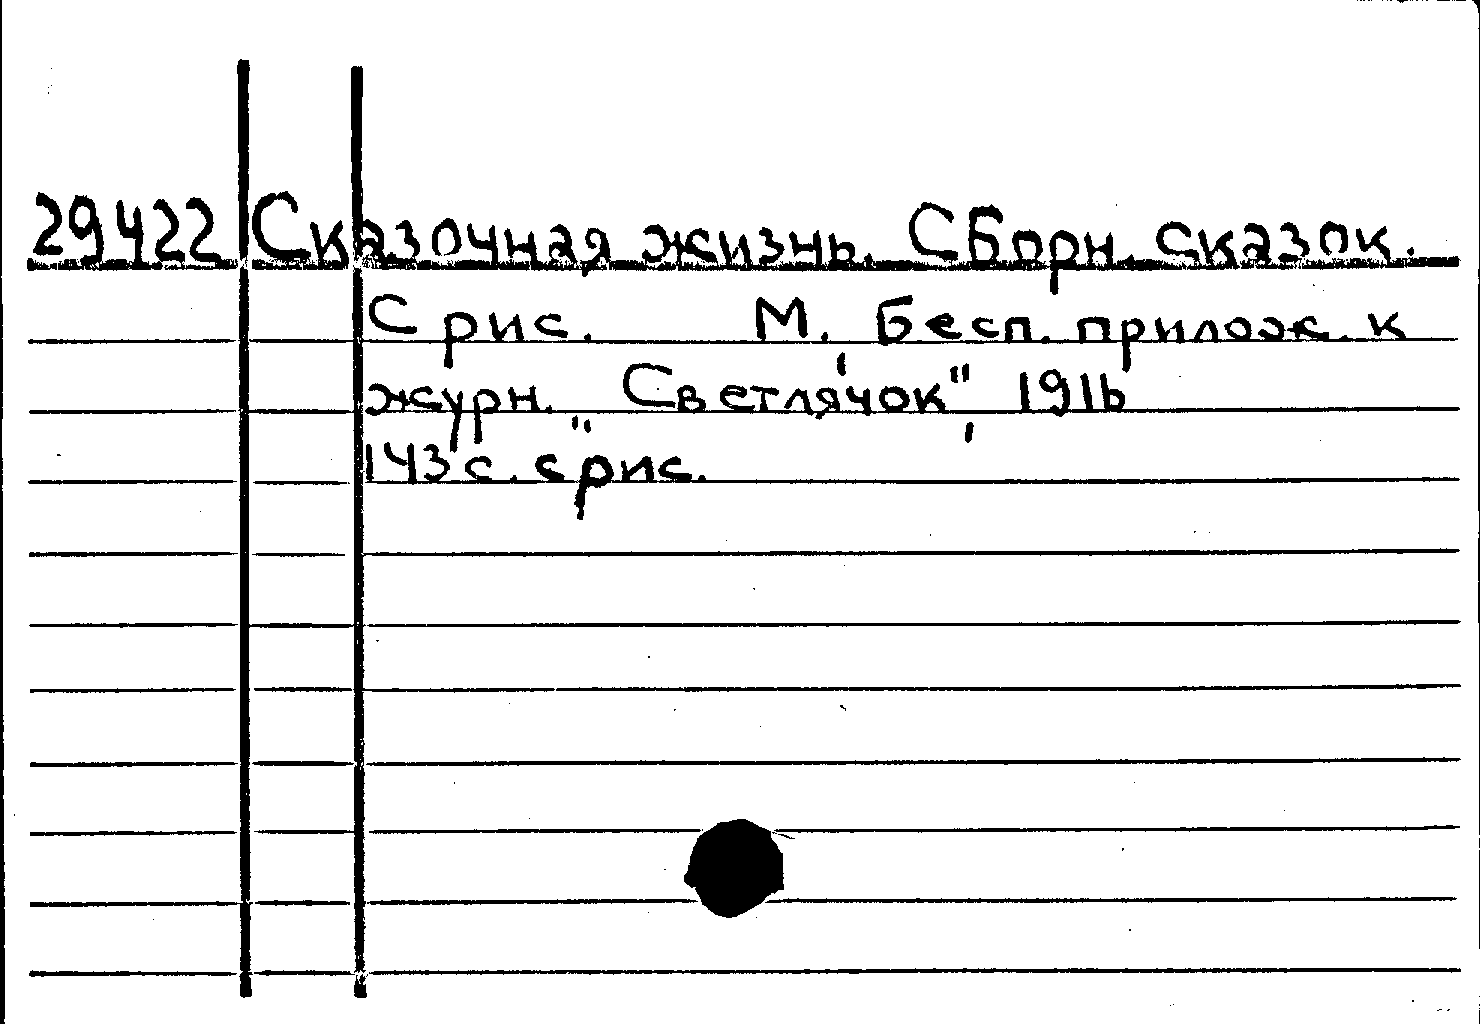 29422 Сказочная жизнь. Сборн. сказок.
С рис. М., Бесп. прилож. к
журн. „Светлячок", 1916
143 с. с рис.